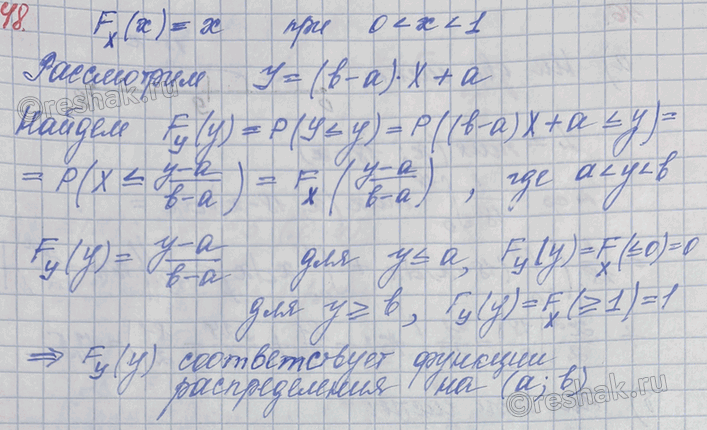 48. F_x(x) = x при 0 < x < 1
Рассмотрим Y = (b-a)·X + a
Найдем F_y(y) = P(Y ≤ y) = P((b-a)X + a ≤ y) =
= P(X ≤ (y-a)/(b-a)) = F_x((y-a)/(b-a)), где a < y < b
F_y(y) = (y-a)/(b-a) для y ≤ a, F_y(y) = F_x(≤0) = 0
для y ≥ b, F_y(y) = F_x(≥1) = 1
⇒ F_y(y) соответствует функции
распределения на (a; b)
©reshak.ru
©reshak.ru
©reshak.ru
©reshak.ru